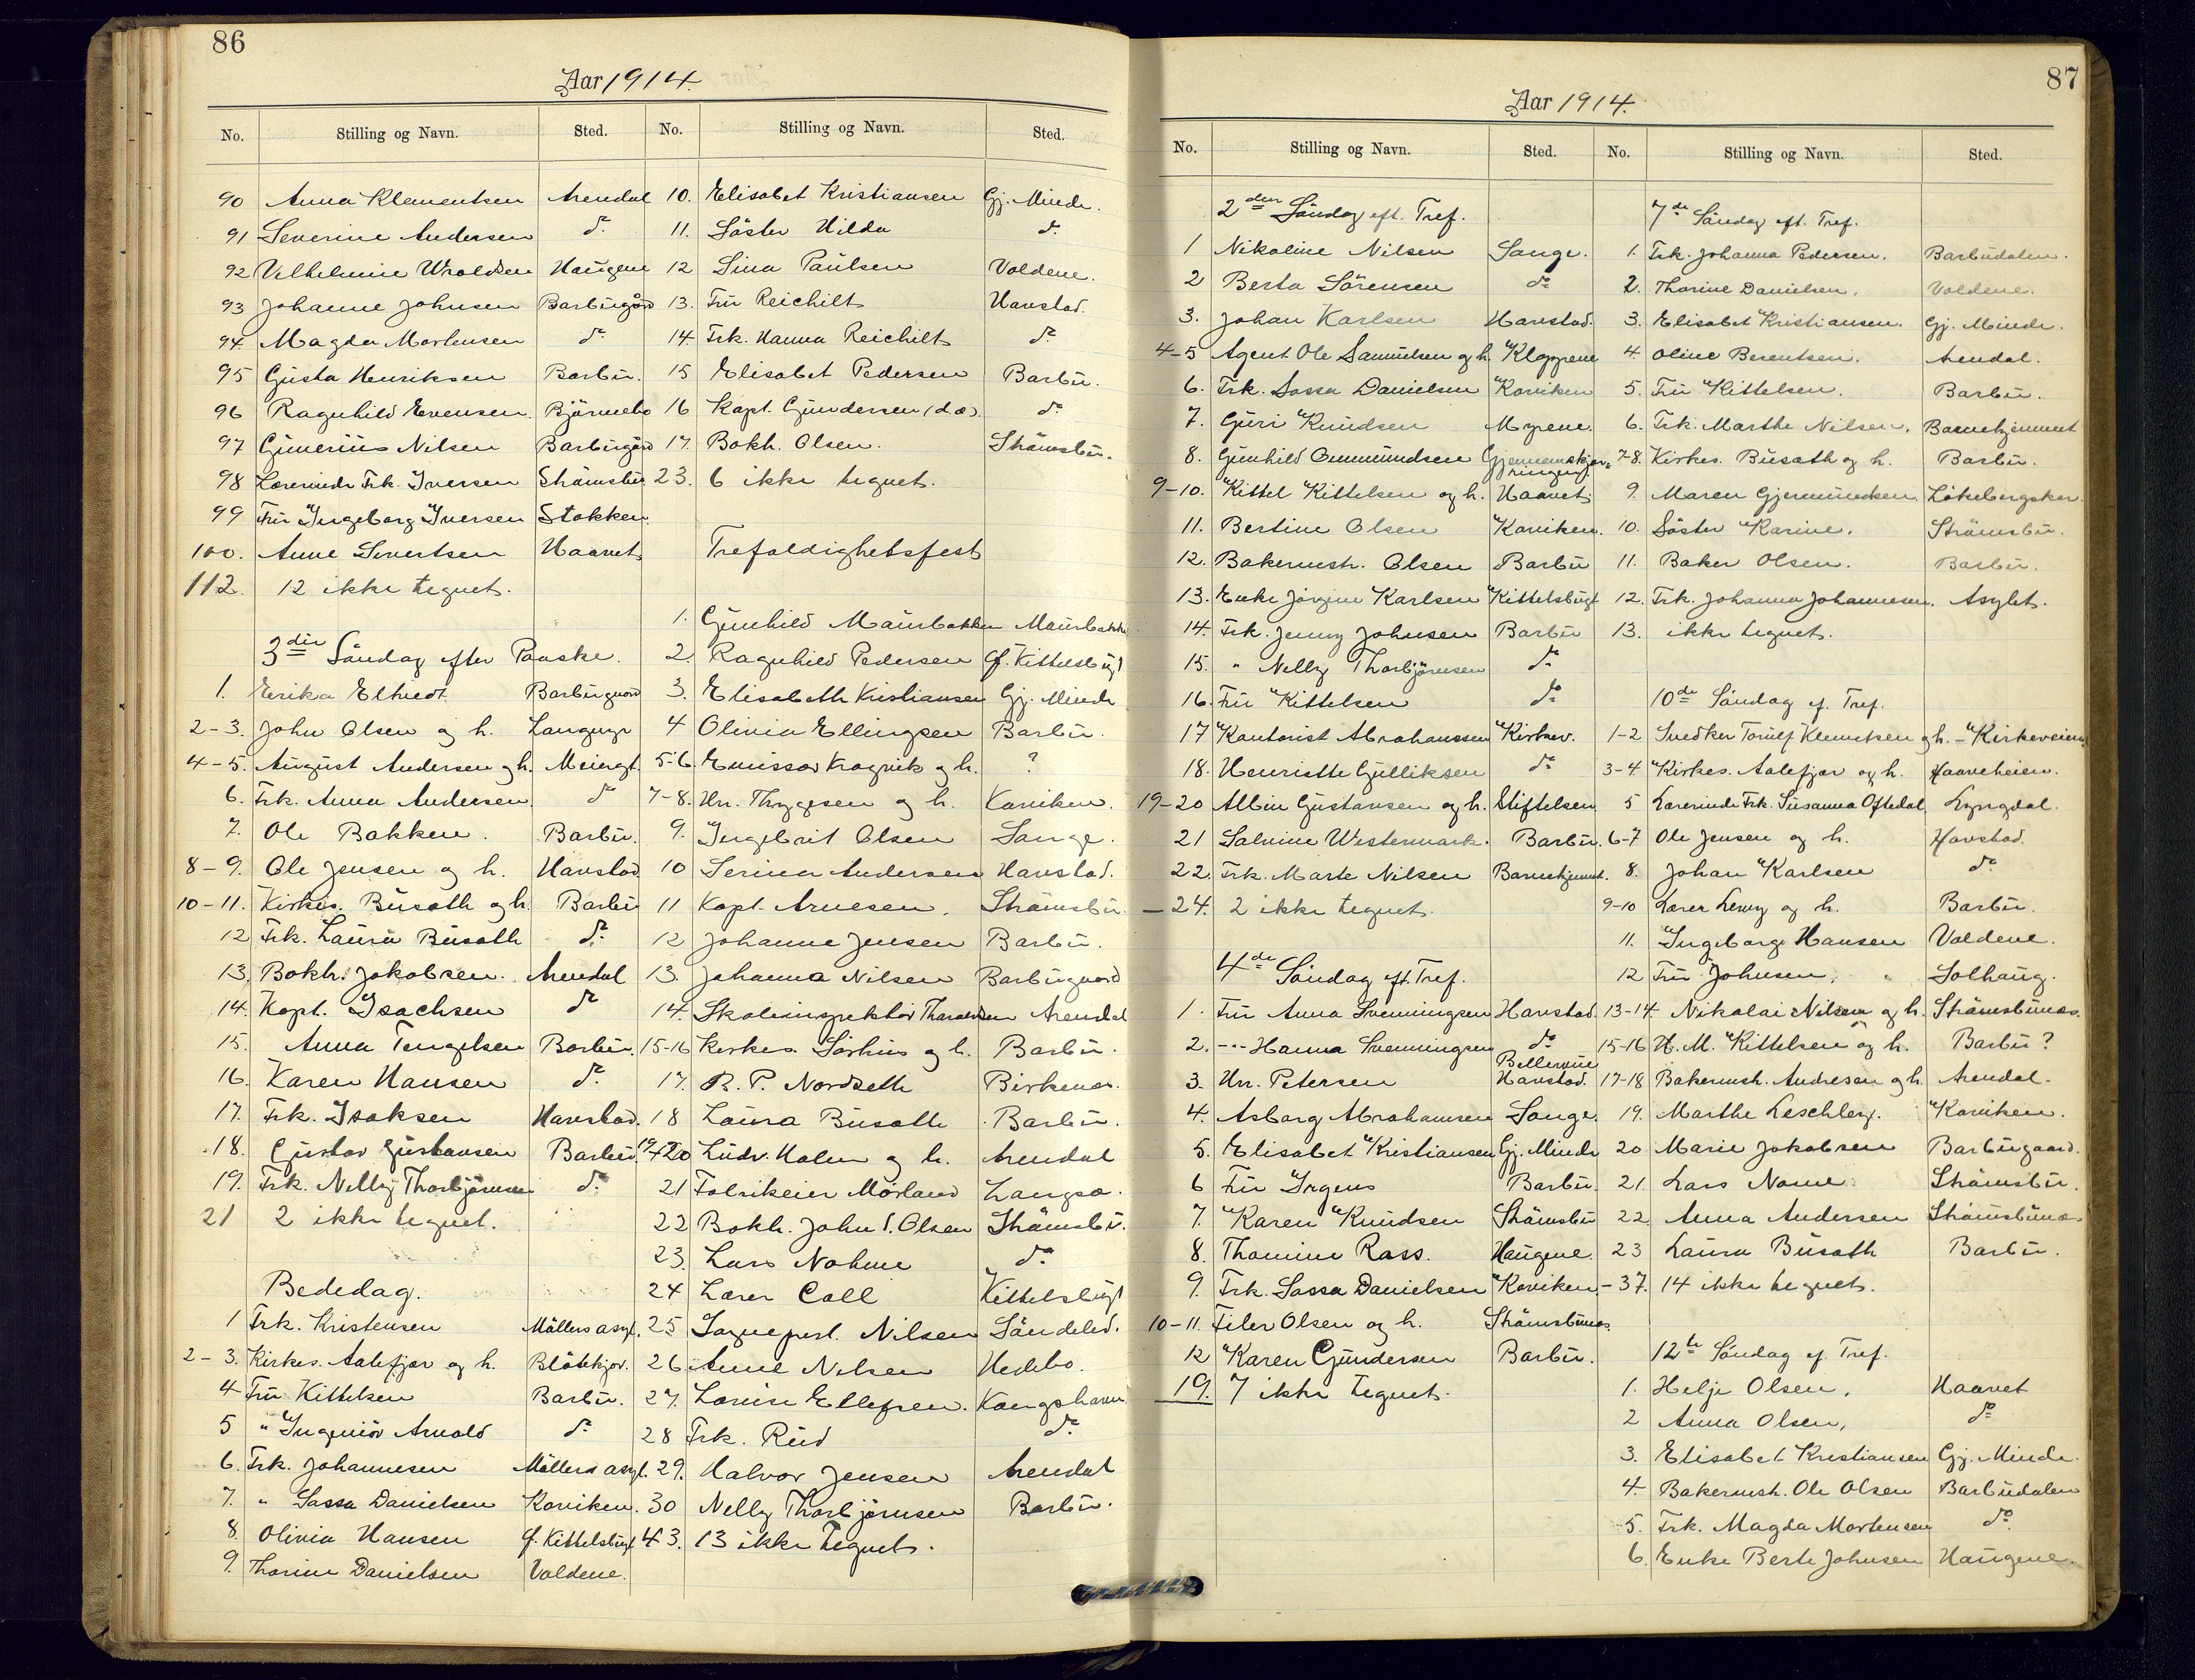 86
Aar 1914.
No. Stilling og Navn. Sted. No. Stilling og Navn. Sted.
90 Anna Klementsen Arendal
91 Severine Andersen do
92 Vilhelmine Wroldsen Haugene
93 Johanne Johnsen Barbugård
94 Magda Mortensen do
95 Gusta Henriksen Barbu.
96 Ragnhild Evensen. Bjørnebo
97 Gunerius Nilsen Barbugård
98 Lærerinde Frk. Iversen Strømsbu
99 Fru Ingeborg Iversen Stokken
100. Anne Sivertsen Haavet
112. 12 ikke tegnet.
3die Søndag efter Paaske.
1. Erika Eltvedt Barbugaard
2-3. John Olsen og h. Langmyr
4-5. August Andersen og h. Meiergt.
6. Frk. Anna Andersen do
7. Ole Bakken. Barbu.
8-9. Ole Jensen og h. Havstad
10-11. Kirkes. Busath og h. Barbu
12 Frk. Laura Busath do
13. Bokh. Jakobsen. Arendal
14. Kapt. Isachsen do
15. Anna Tengelsen Barbu.
16. Karen Hansen do
17. Frk. Isaksen Havstad.
18. Gustav Gustavsen Barbu
19. Frk. Nelly Thorbjørnsen do
21 2 ikke tegnet.
Bededag.
1 Frk. Kristensen Møllers asyl.
2-3. Kirkes. Aalefjær og h. Bløtekjær.
4 Fru Kittelsen Barbu.
5 " Ingeniør Arnold do
6. Frk. Johannesen Møllers asyl.
7. " Sassa Danielsen Kaviken.
8. Olivia Hansen Gl. Kittelsbugt
9. Thorine Danielsen Voldene.
10. Elisabet Kristiansen Gj. Minde.
11. Søster Hilda do
12 Sina Paulsen Voldene.
13. Fru Reichilt Havstad.
14. Frk. Hanna Reichilt do
15 Elisabet Pedersen Barbu.
16 Kapt. Gundersen (d.æ). do
17. Bokh. Olsen. Strømsbu.
23. 6 ikke tegnet.
Trefoldighetsfest
1. Gunhild Maurbakken Maurbakken
2. Ragnhild Pedersen Gl. Kittelsbugt
3. Elisabeth Kristiansen Gj. Minde
4 Olivia Ellingsen Barbu.
5-6. Emissær Kragvik og h. ?
7-8. Hr. Thygesen og h. Kaviken.
9. Ingebrit Olsen Songe.
10 Serina Andersen Havstad.
11 Kapt. Arnesen. Strømsbu.
12 Johanne Jensen Barbu.
13. Johanna Nilsen Barbugaard
14. Skoleinspektør Tharaldsen Arendal
15-16 Kirkes. Sørhus og h. Barbu.
17. R. P. Nordseth Birkenæs.
18 Laura Busath Barbu.
19-20 Ludv. Holm og h. Arendal
21 Fabrikeier Mörland Langsæ.
22 Bokh. John S. Olsen Strømsbu.
23. Lars Nohme do
24 Lærer Call Kittelsbugt
25 Sogneprest Nilsen Søndeled.
26 Anne Nilsen Hedebo.
27. Louise Ellefsen. Kongshavn
28 Frk. Rud do
29. Halvor Jensen Arendal
30 Nelly Thorbjørnsen Barbu.
43. 13 ikke tegnet.
87
Aar 1914.
No. Stilling og Navn. Sted. No. Stilling og Navn. Sted.
2den Søndag eft. Tref.
1 Nikoline Nilsen Songe.
2 Berta Sørensen do
3. Johan Karlsen Havstad.
4-5 Agent Ole Samuelsen og h. Kløgrene
6. Frk. Sassa Danielsen Kaviken
7. Guri Knudsen Myrene.
8. Gunhild Gunmundsen Gjennemskjæringen
9-10. Kittel Kittelsen og h. Haavet.
11. Bertine Olsen Kaviken.
12. Bakermstr. Olsen Barbu
13. Enke Jørgine Karlsen Kittelsbugt
14. Frk. Jenny Johnsen Barbu
15. " Nelly Thorbjørnsen do
16. Fru Kittelsen do
17 Kantorist Abrahamsen Kirkev.
18. Henriette Gulliksen do
19-20 Albin Gustavsen og h. Stiftelsen
21 Salvine Westermark. Barbu.
22. Frk. Marte Nilsen Barnehjemmet.
—24. 2 ikke tegnet.
4de Søndag eft. Tref.
1. Fru Anna Svenningsen Havstad.
2. -"- Hanna Svenningsen do
3. Hr. Petersen Bellevue Havstad.
4. Asborg Abrahamsen Songe.
5. Elisabet Kristiansen Gj. Minde
6 Fru Irgens Barbu.
7. Karen Knudsen Strømsbu
8. Thomine Rass. Haugene.
9. Frk. Sassa Danielsen Kaviken
10-11. Filer Olsen og h. Strømsbunæs.
12 Karen Gundersen Barbu.
19. 7 ikke tegnet.
7de Søndag eft. Tref.
1. Frk. Johanna Pedersen. Barbudalen.
2. Thorine Danielsen. Voldene.
3. Elisabet Kristiansen. Gj. Minde.
4. Oline Berentsen. Arendal.
5. Fru Kittelsen. Barbu.
6. Frk. Marthe Nilsen. Barnehjemmet
7-8. Kirkes. Busath og h. Barbu.
9. Maren Gjermundsen. Løkebergskar.
10. Søster Karine. Strømsbu.
11. Baker Olsen. Barbu.
12. Frk. Johanna Johannesen. Asylet.
13. ikke tegnet.
10de Søndag ef. Tref.
1-2 Snedker Torulf Klemetsen og h. - Kirkeveien
3-4. Kirkes. Aalefjær og h. Haaveheien.
5 Lærerinde Frk. Susanna Oftedal Lyngdal.
6-7 Ole Jensen og h. Havstad.
8. Johan Karlsen do
9-10 Lærer Lewy og h. Barbu.
11. Ingeborg Hansen Voldene.
12 Fru Johnsen. Solhaug.
13-14 Nikolai Nilsen og h. Strømsbunæs.
15-16 H. M. Kittelsen og h. Barbu?
17-18 Bakermstr. Andresen og h. Arendal.
19. Marthe Leschley. Kaviken.
20 Marie Jakobsen Barbugaard.
21. Lars Nome. Strømsbu.
22. Anna Andersen Strømsbunæs
23 Laura Busath Barbu.
-37. 14 ikke tegnet.
12te Søndag ef. Tref.
1. Helje Olsen. Haavet
2 Anna Olsen, do
3. Elisabet Kristiansen Gj. Minde.
4. Bakermstr. Ole Olsen Barbudalen
5. Frk. Magda Mortensen do
6. Enke Berte Johnsen Haugene.